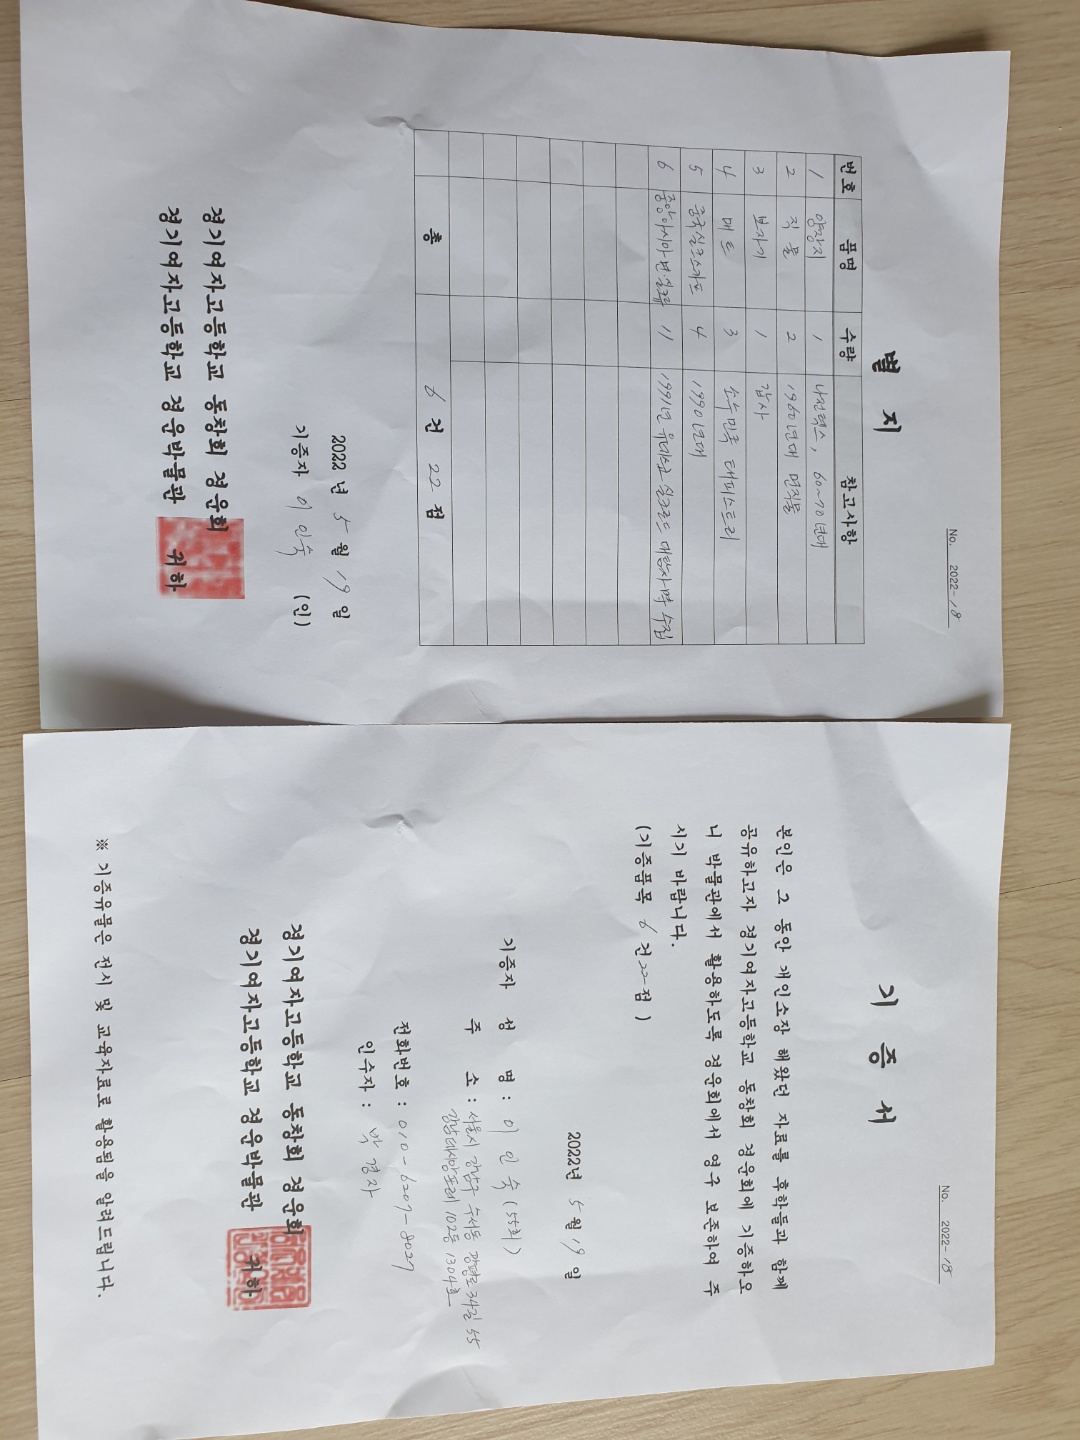 No. 2022-18
별 지
번호 품명 수량 참고사항
1 양장지 1 나전럭스, 60~70년대
2 직물 2 1960년대 면직물
3 보자기 1 갑사
4 매트 3 소수민족 태피스트리
5 중국실크스카프 4 1990년대
6 중앙아시아 면·실크 11 1991년 유네스코 실크로드 대탐사때 수집
총 6 건 22 점
2022 년 5 월 19 일
기증자 이 인 숙 (인)
경기여자고등학교 동창회 경운회
경기여자고등학교 경운박물관 귀하
No. 2022-18
기 증 서
본인은 그 동안 개인소장 해왔던 자료를 후학들과 함께
공유하고자 경기여자고등학교 동창회 경운회에 기증하오
니 박물관에서 활용하도록 경운회에서 영구 보존하여 주
시기 바랍니다.
(기증품목 6 건 22 점 )
2022년 5 월 19 일
기증자 성 명 : 이 인 숙 (55회)
주 소 : 서울시 강남구 수서동 광평로 34길 55
강남데시앙포레 102동 1304호
전화번호 : 010-6207-8027
인수자 : 박 경 자
경기여자고등학교 동창회 경운회
경기여자고등학교 경운박물관 귀하
※ 기증유물은 전시 및 교육자료로 활용됨을 알려드립니다.